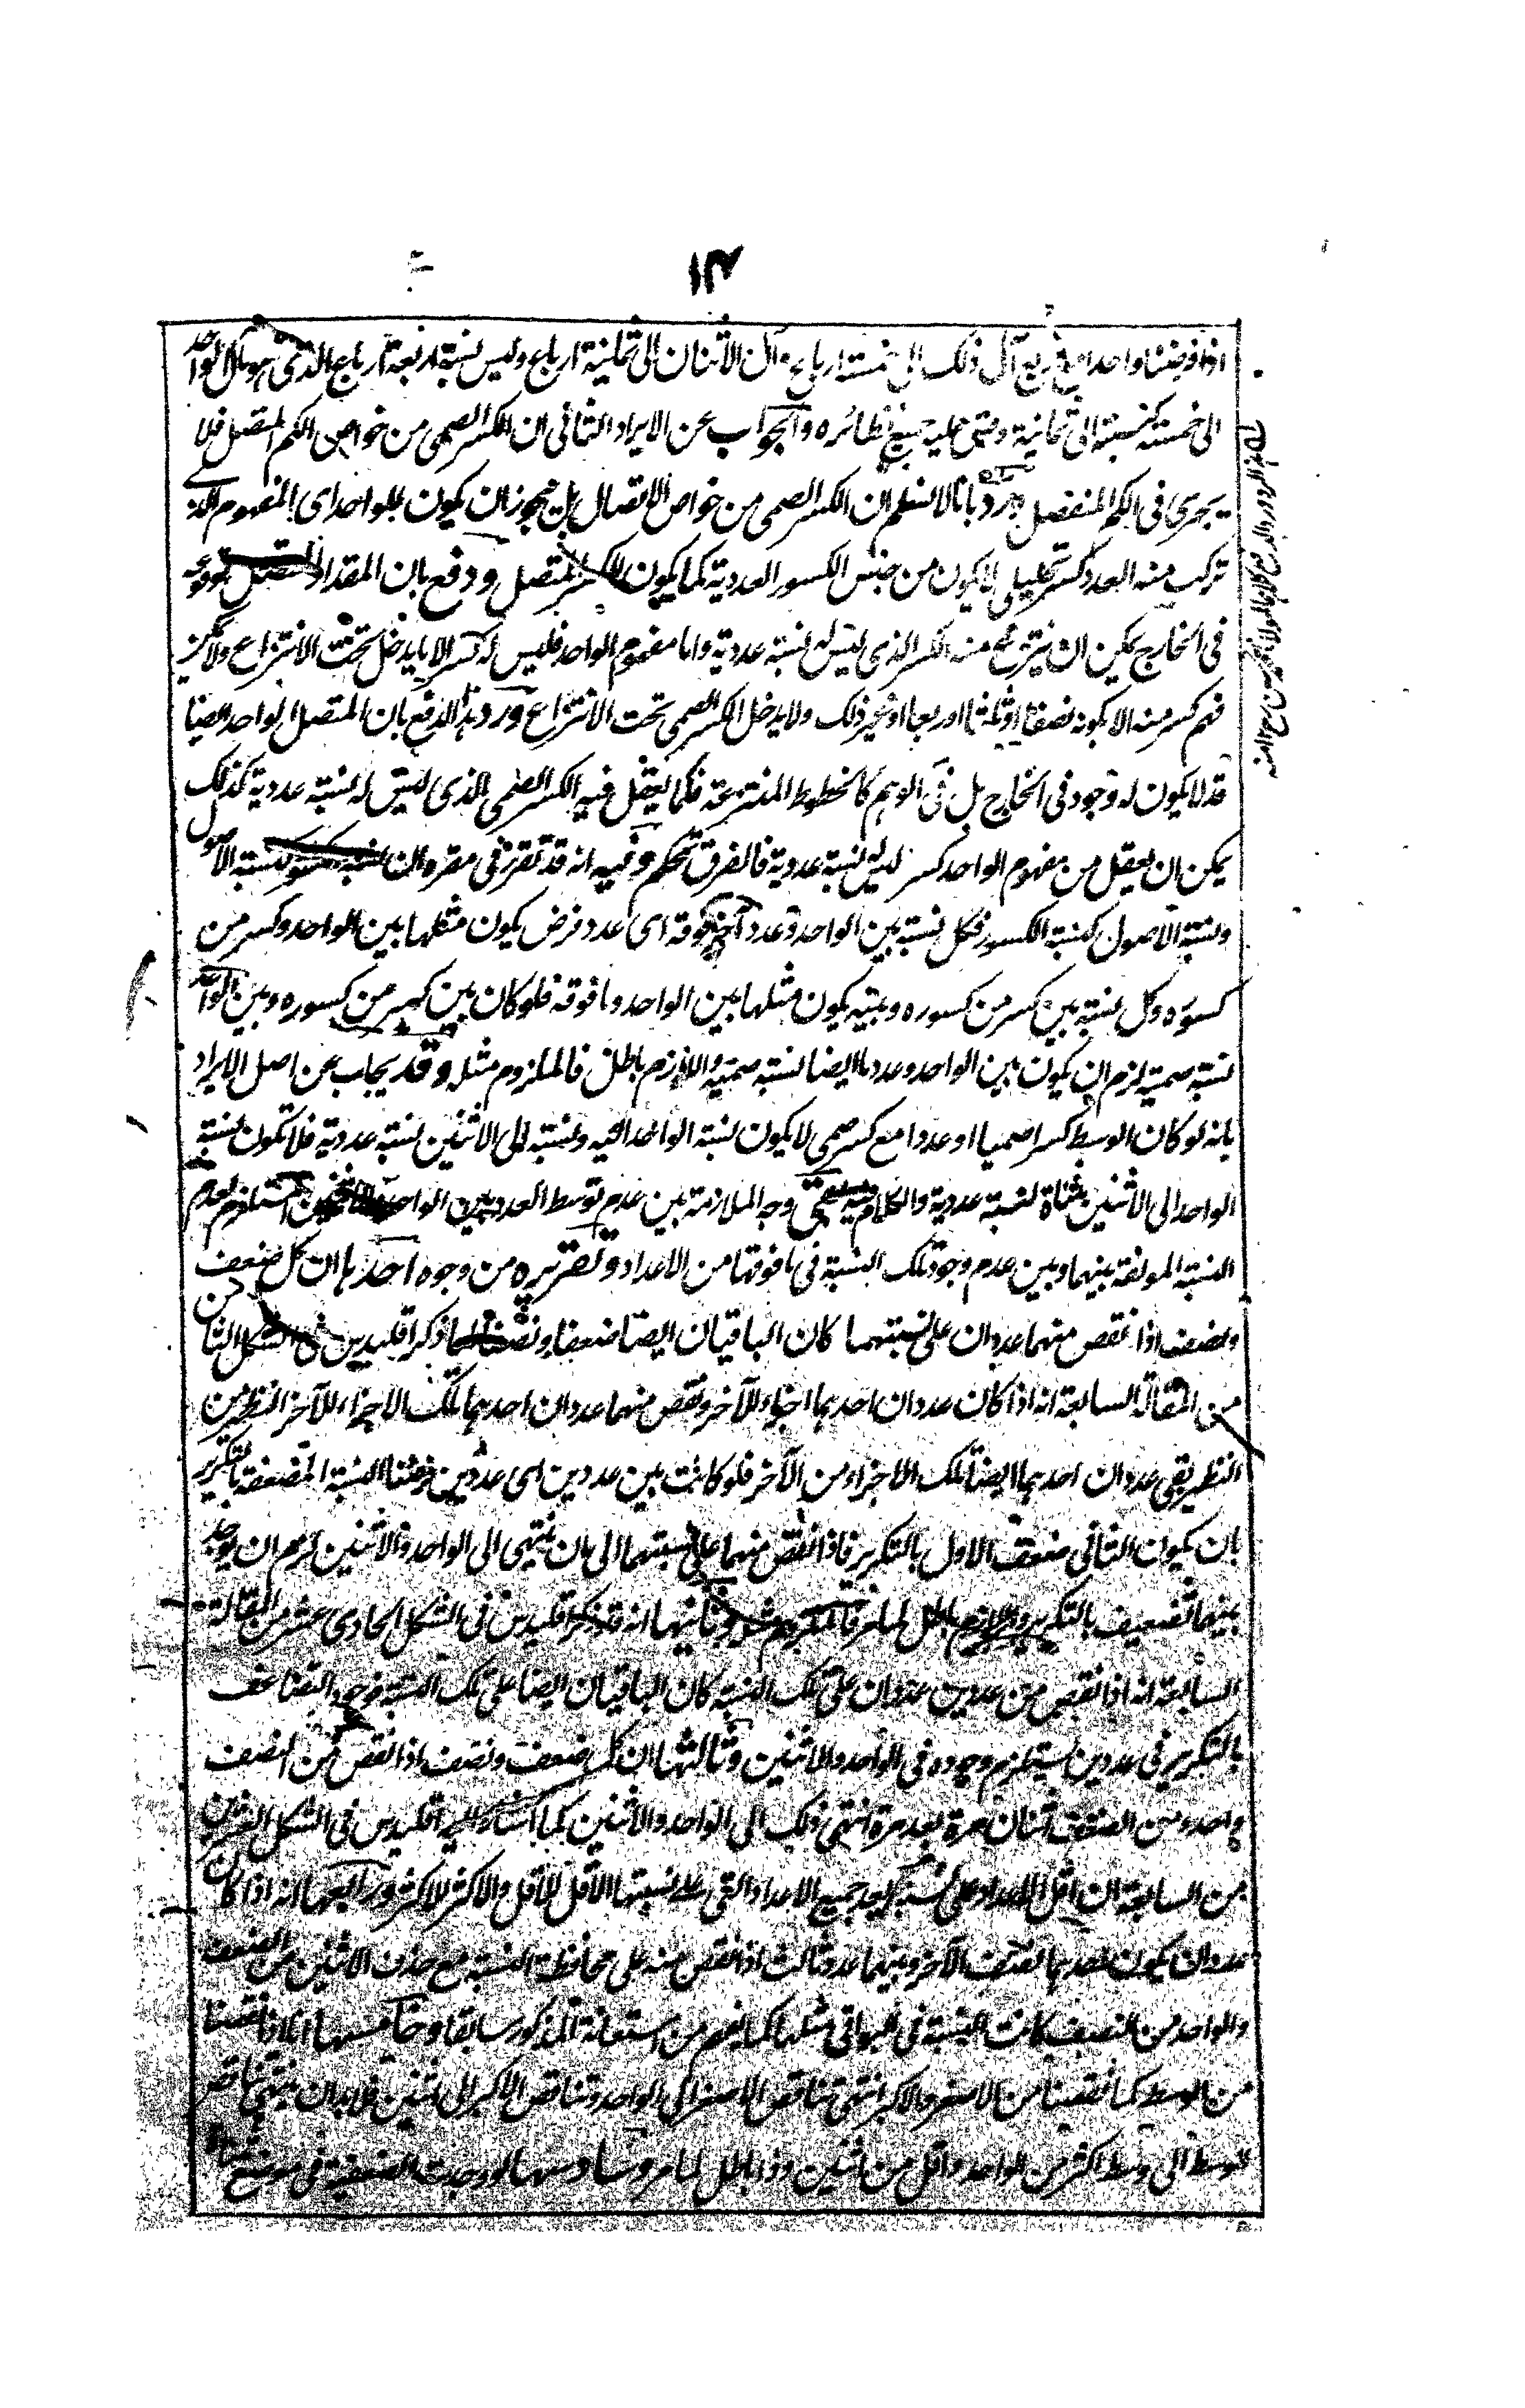 ١٣
اذا فرضنا واحدا مع ربع آل ذلك الى خمسة ارباع وآل الاثنان الى ثمانية ارباع وليس نسبة اربعة ارباع الذى هو مآل الواحد
الى خمسة كنسبته الى ثمانية وقس عليه جميع نظائره والجواب عن الايراد الثانى ان الكسر الصمى من خواص الكم المتصل فلا
يجرى فى الكم المنفصل ورد بانا لا نسلم ان الكسر الصمى من خواص الاتصال بل يجوز ان يكون للواحد اى المفهوم الذى
تركب منه العدد كسر تحليلى لا يكون من جنس الكسور العددية كما يكون للكسر المتصل ودفع بان المقدار المتصل لوقوعه
فى الخارج يمكن ان ينتزع منه الكسر الذى ليس له نسبة عددية واما مفهوم الواحد فليس له كسر الا ما يدخل تحت الانتزاع ولا يمكن
فهم كسر منه الا بكونه نصفا او ثلثا او ربعا او غير ذلك ولا يدخل الكسر الصمى تحت الانتزاع ورد هذا الدفع بان المتصل الواحد ايضا
قد لا يكون له وجود فى الخارج بل فى الوهم كالخطوط المنتزعة فكما يعقل فيه الكسر الصمى الذى ليس له نسبة عددية كذلك
يمكن ان يعقل من مفهوم الواحد كسر ليس له نسبة عددية فالفرق تحكم وفيه انه قد تقرر فى مقره ان نسبة الكسور كنسبة الاصول
ونسبة الاصول كنسبة الكسور فكل نسبة بين الواحد وعدد آخر فوقه اى عدد فرض يكون مثلها بين الواحد وكسر من
كسوره وكل نسبة بين كسر من كسوره وبينه يكون مثلها بين الواحد وما فوقه فلو كان بين كسر من كسوره وبين الواحد
نسبة صمية لزم ان يكون بين الواحد وعدد ما ايضا نسبة صمية واللازم باطل فالملزوم مثله وقد يجاب عن اصل الايراد
بانه لو كان الوسط كسرا صميا او عددا مع كسر صمى لا يكون نسبة الواحد اليه ونسبته الى الاثنين نسبة عددية فلا تكون نسبة
الواحد الى الاثنين مثناة لنسبة عددية والكلام فيه وجه الملازمة بين عدم توسط العدد بين الواحد والاثنين المستلزم لعدم
النسبة المولفة بينهما وبين عدم وجود تلك النسبة فى ما فوقها من الاعداد وتقريره من وجوه احدها ان كل ضعف
ونصف اذا نقص منهما عددان على نسبتهما كان الباقيان ايضا ضعفا ونصفا لما ذكر اقليدس فى الشكل الثامن
من المقالة السابعة انه اذا كان عددان احدهما اجزاء للآخر ونقص منهما عددان احدهما تلك الاجزاء للآخر النظير من
النظير بقى عددان احدهما ايضا تلك الاجزاء من الآخر فلو كانت بين عددين اى عددين فرضنا النسبة المضعفة بالتكرير
بان يكون الثانى ضعف الاول بالتكرير فاذا نقص منهما على نسبتهما الى ان ينتهى الى الواحد والاثنين لزم ان يوجد
بينهما تضعيف بالتكرير واللازم باطل لما مر فالملزوم مثله وثانيها انه قد ذكر اقليدس فى الشكل الحادى عشر من المقالة
السابعة انه اذا نقص من عددين عددان على تلك النسبة كان الباقيان ايضا على تلك النسبة فوجود التضاعف
بالتكرير فى عددين يستلزم وجوده فى الواحد والاثنين وثالثها ان كل ضعف ونصف اذا نقص من النصف
واحد ومن الضعف اثنان مرة بعد مرة انتهى ذلك الى الواحد والاثنين كما اشار اليه اقليدس فى الشكل العشرين
من السابعة ان اقل الاعداد على نسبة يعد جميع الاعداد التى على نسبتها الاقل للاقل والاكثر للاكثر ورابعها انه اذا كان
عددان يكون احدهما نصف الآخر وبينهما عدد ثالث اذا نقص منه على محافظة النسبة مع حذف الاثنين من الضعف
والواحد من النصف كانت النسبة فى البواقى مثلها كما يفهم من المذكور سابقا وخامسها انا اذا نقصنا
من الوسط كما نقصنا من الاصغر والاكبر انتهى تناقص الاصغر الى الواحد وتناقص الاكبر الى اثنين فلابد ان ينتهى تناقص
الوسط الى وسط اكثر من الواحد واقل من اثنين وذا باطل لما مر وسادسها لو وجدت الضعفية فى موضع